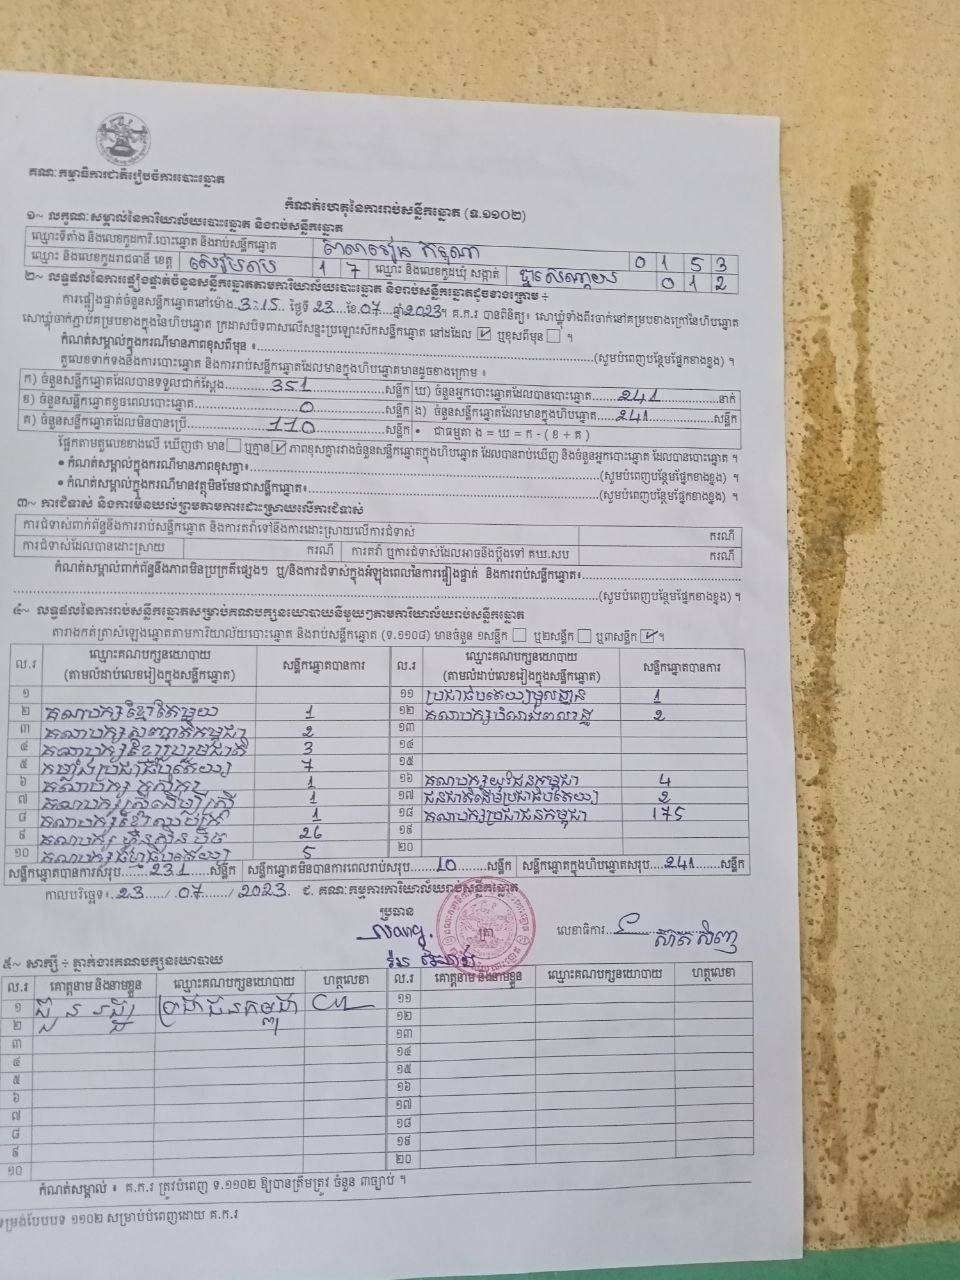 គណៈកម្មាធិការជាតិរៀបចំការបោះឆ្នោត
កំណត់ហេតុនៃការរាប់សន្លឹកឆ្នោត (ទ.១១០២)
១~ លក្ខណៈសម្គាល់នៃការិយាល័យបោះឆ្នោត និងរាប់សន្លឹកឆ្នោត
ឈ្មោះទីតាំង និងលេខកូដការិ.បោះឆ្នោត និងរាប់សន្លឹកឆ្នោត 0 1 5 3
ឈ្មោះ និងលេខកូដរាជធានី ខេត្ត សៀមរាប 1 7 ឈ្មោះ និងលេខកូដឃុំ សង្កាត់ 0 1 2
២~ លទ្ធផលនៃការផ្ទៀងផ្ទាត់ចំនួនសន្លឹកឆ្នោតតាមការិយាល័យបោះឆ្នោត និងរាប់សន្លឹកឆ្នោតដូចខាងក្រោម ÷
ការផ្ទៀងផ្ទាត់ចំនួនសន្លឹកឆ្នោតនៅម៉ោង.3:15. ថ្ងៃទី 23...ខែ.07....ឆ្នាំ2023។ គ.ក.រ បានពិនិត្យ៖ សោឃ្លុំទាំងពីរចាក់នៅគម្របខាងក្រៅនៃហិបឆ្នោត
សោឃ្លុំចាក់ភ្ជាប់គម្របខាងក្នុងនៃហិបឆ្នោត ក្រដាសបិទពាសលើសន្ទះប្រឡោះសឹកសន្លឹកឆ្នោត នៅដដែល ☑ ឬខុសពីមុន ☐ ។
កំណត់សម្គាល់ក្នុងករណីមានភាពខុសពីមុន ៖ (សូមបំពេញបន្ថែមផ្នែកខាងខ្នង) ។
តួលេខទាក់ទងនឹងការបោះឆ្នោត និងការរាប់សន្លឹកឆ្នោតដែលមានក្នុងហិបឆ្នោតមានដូចខាងក្រោម ៖
ក) ចំនួនសន្លឹកឆ្នោតដែលបានទទួលជាក់ស្តែង 351 សន្លឹក ឃ) ចំនួនអ្នកបោះឆ្នោតដែលបានបោះឆ្នោត 241 នាក់
ខ) ចំនួនសន្លឹកឆ្នោតខូចពេលបោះឆ្នោត 0 សន្លឹក ង) ចំនួនសន្លឹកឆ្នោតដែលមានក្នុងហិបឆ្នោត 241 សន្លឹក
គ) ចំនួនសន្លឹកឆ្នោតដែលមិនបានប្រើ 110 សន្លឹក • ជាធម្មតា ង = ឃ = ក - ( ខ + គ )
ផ្អែកតាមតួលេខខាងលើ ឃើញថា មាន ☐ ឬគ្មាន ☑ ភាពខុសគ្នារវាងចំនួនសន្លឹកឆ្នោតក្នុងហិបឆ្នោត ដែលបានរាប់ឃើញ និងចំនួនអ្នកបោះឆ្នោត ដែលបានបោះឆ្នោត ។
• កំណត់សម្គាល់ក្នុងករណីមានភាពខុសគ្នា៖ (សូមបំពេញបន្ថែមផ្នែកខាងខ្នង) ។
• កំណត់សម្គាល់ក្នុងករណីមានវត្ថុមិនមែនជាសន្លឹកឆ្នោត៖ (សូមបំពេញបន្ថែមផ្នែកខាងខ្នង) ។
៣~ ការជំទាស់ និងការមិនយល់ព្រមតាមការដោះស្រាយលើការជំទាស់
ការជំទាស់ពាក់ព័ន្ធនឹងការរាប់សន្លឹកឆ្នោត និងការតវ៉ាទៅនឹងការដោះស្រាយលើការជំទាស់ ករណី
ការជំទាស់ដែលបានដោះស្រាយ ករណី ការតវ៉ា ឬការជំទាស់ដែលអាចនឹងប្តឹងទៅ គឃ.សប ករណី
កំណត់សម្គាល់ពាក់ព័ន្ធនឹងភាពមិនប្រក្រតីផ្សេងៗ ឬ/និងការជំទាស់ក្នុងអំឡុងពេលនៃការផ្ទៀងផ្ទាត់ និងការរាប់សន្លឹកឆ្នោត៖
(សូមបំពេញបន្ថែមផ្នែកខាងខ្នង) ។
៤~ លទ្ធផលនៃការរាប់សន្លឹកឆ្នោតសម្រាប់គណបក្សនយោបាយនីមួយៗតាមការិយាល័យរាប់សន្លឹកឆ្នោត
តារាងកត់ត្រាសំឡេងឆ្នោតតាមការិយាល័យបោះឆ្នោត និងរាប់សន្លឹកឆ្នោត (ទ.១១០៨) មានចំនួន ១សន្លឹក ☐ ឬ២សន្លឹក ☐ ឬ៣សន្លឹក ☑ ។
ល.រ ឈ្មោះគណបក្សនយោបាយ (តាមលំដាប់លេខរៀងក្នុងសន្លឹកឆ្នោត) សន្លឹកឆ្នោតបានការ ល.រ ឈ្មោះគណបក្សនយោបាយ (តាមលំដាប់លេខរៀងក្នុងសន្លឹកឆ្នោត) សន្លឹកឆ្នោតបានការ
១ ១១ ប្រជាធិបតេយ្យមូលដ្ឋាន 1
២ គណបក្សខ្មែរតែមួយ 1 ១២ គណបក្ស 2
៣ គណបក្សសញ្ជាតិកម្ពុជា 2 ១៣
៤ គណបក្សខ្មែររួបរួមជាតិ 3 ១៤
៥ កម្លាំងប្រជាធិបតេយ្យ 7 ១៥
៦ គណបក្សកសិករ 1 ១៦ គណបក្សយុវជនកម្ពុជា 4
៧ គណបក្សស្ត្រីដើម្បីស្ត្រី 1 ១៧ ជនជាតិដើមប្រជាធិបតេយ្យ 2
៨ គណបក្ស 1 ១៨ គណបក្សប្រជាជនកម្ពុជា 175
៩ គណបក្សហ៊្វុនស៊ិនប៉ិច 26 ១៩
១០ គណបក្សធម្មាធិបតេយ្យ 5 ២០
សន្លឹកឆ្នោតបានការសរុប 231 សន្លឹក សន្លឹកឆ្នោតមិនបានការពេលរាប់សរុប 10 សន្លឹក សន្លឹកឆ្នោតក្នុងហិបឆ្នោតសរុប 241 សន្លឹក
កាលបរិច្ឆេទ៖ 23 / 07 / 2023 ជ. គណៈកម្មការការិយាល័យរាប់សន្លឹកឆ្នោត
ប្រធាន
ត្រា
លេខាធិការ
៥~ សាក្សី ÷ ភ្នាក់ងារគណបក្សនយោបាយ
ល.រ គោត្តនាម និងនាមខ្លួន ឈ្មោះគណបក្សនយោបាយ ហត្ថលេខា ល.រ គោត្តនាម និងនាមខ្លួន ឈ្មោះគណបក្សនយោបាយ ហត្ថលេខា
១ ប្រជាជនកម្ពុជា ១១
២ ១២
៣ ១៣
៤ ១៤
៥ ១៥
៦ ១៦
៧ ១៧
៨ ១៨
៩ ១៩
១០ ២០
កំណត់សម្គាល់ ៖ គ.ក.រ ត្រូវបំពេញ ទ.១១០២ ឱ្យបានត្រឹមត្រូវ ចំនួន ៣ច្បាប់ ។
ទម្រង់បែបបទ ១១០២ សម្រាប់បំពេញដោយ គ.ក.រ